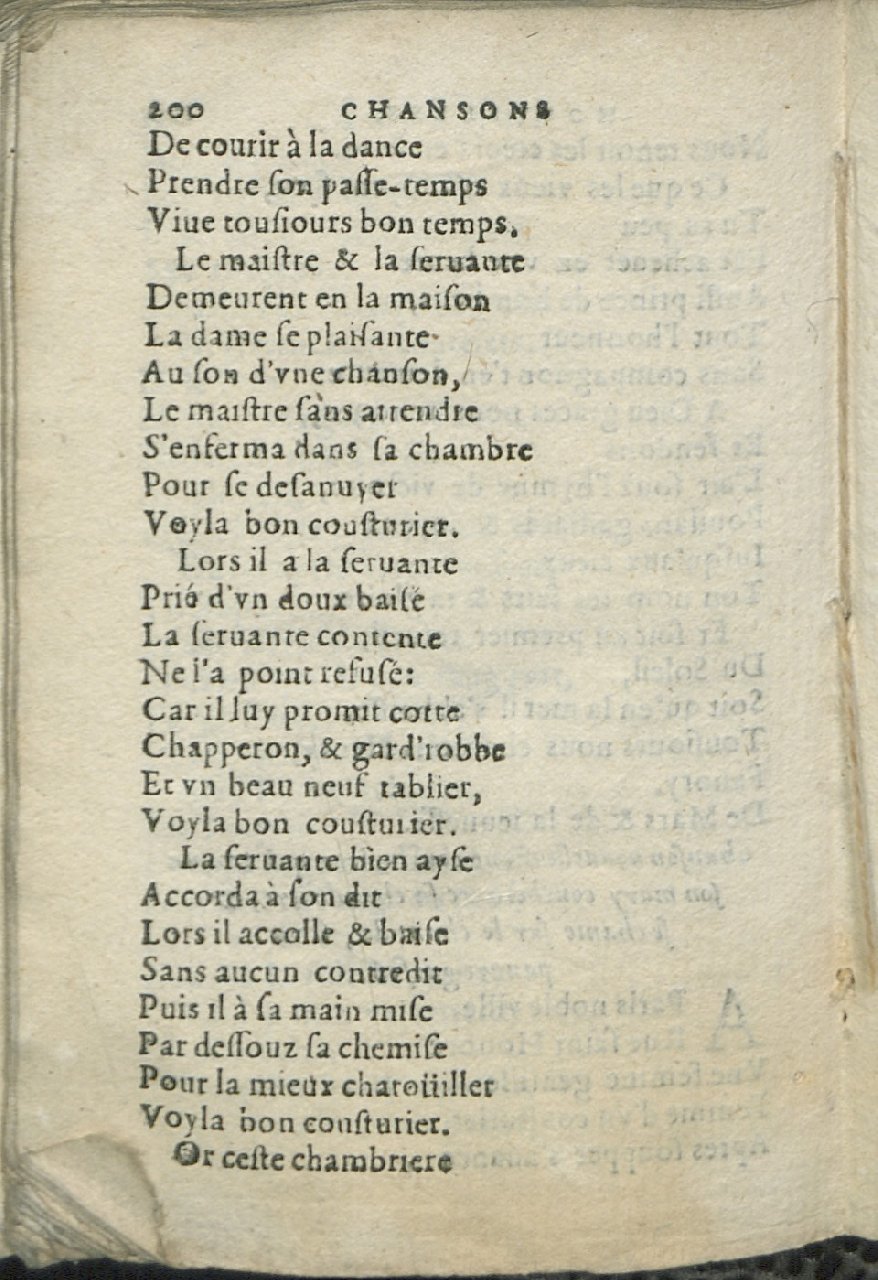 200 CHANSONS
De courir à la dance
Prendre ſon paſſe-temps
Viue touſiours bon temps.
Le maiſtre & la ſeruante
Demeurent en la maiſon
La dame ſe plaiſante
Au ſon d'vne chanſon,
Le maiſtre ſans attendre
S'enferma dans ſa chambre
Pour ſe deſanuyer
Voyla bon couſturier.
Lors il a la ſeruante
Prié d'vn doux baiſé
La ſeruante contente
Ne l'a point refuſé:
Car il luy promit cotte
Chapperon, & gard'robbe
Et vn beau neuf tablier,
Voyla bon couſturier.
La ſeruante bien ayſe
Accorda à ſon dit
Lors il accolle & baiſe
Sans aucun contredit
Puis il à ſa main miſe
Par deſſouz ſa chemiſe
Pour la mieux charoüiller
Voyla bon couſturier.
Or ceſte chambriere